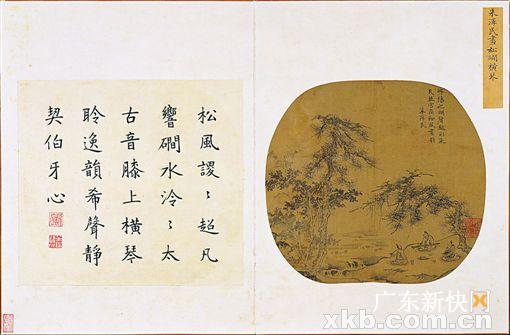 朱澤民畫松磵橫琴
朱澤民
松風謖〻超凡
響磵水泠〻太
古音膝上橫琴
聆逸韻希聲靜
契伯牙心
广东新快网
xkb.com.cn